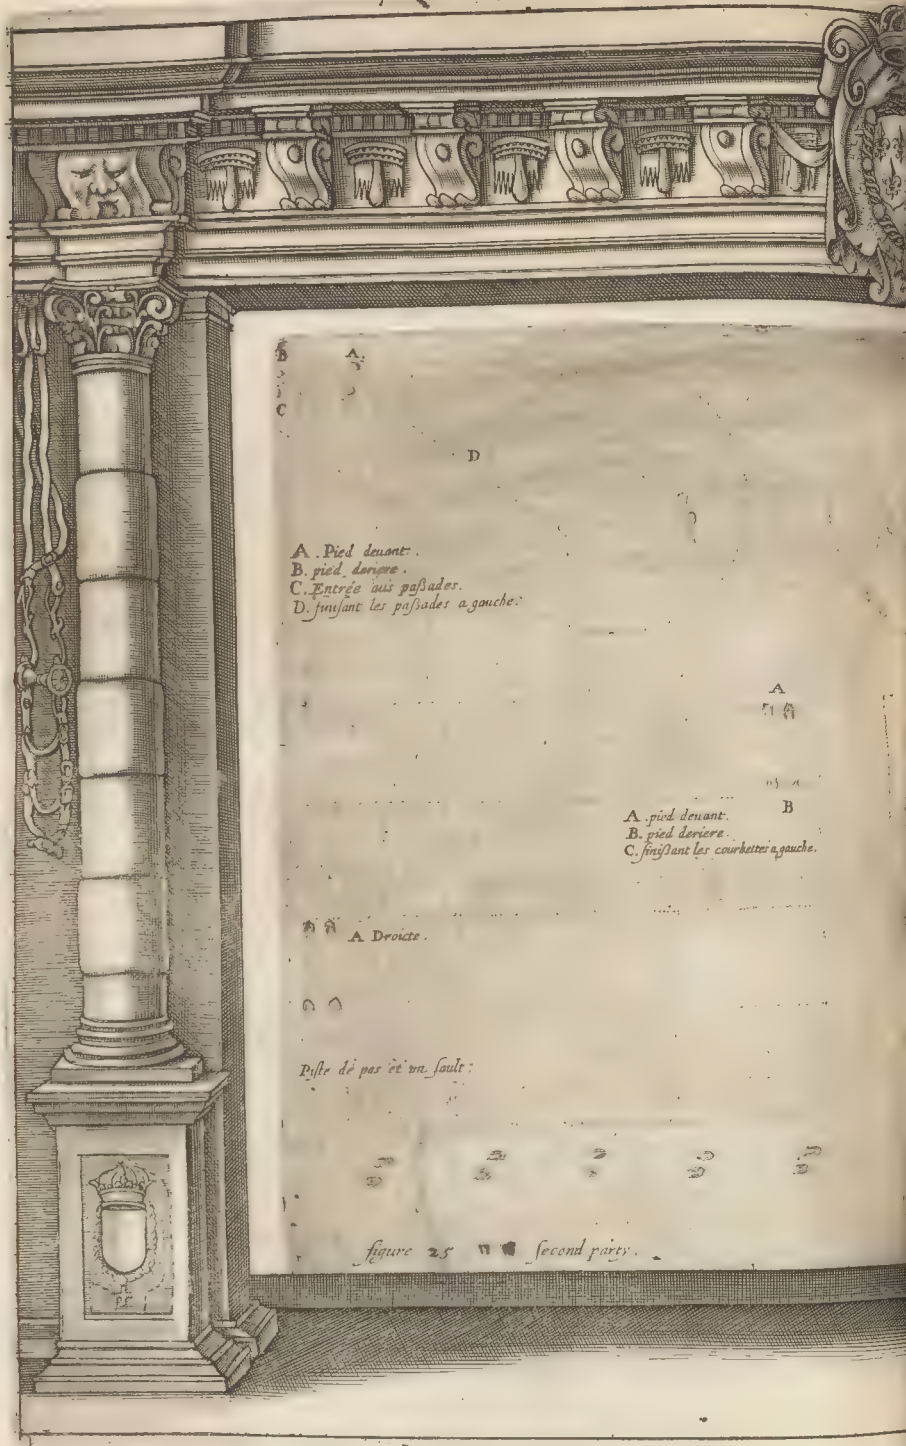 B A.
C
D
A. Pied deuant.
B. pied deriere.
C. Entrée aus paſsades.
D. finiſant les paſsades a gauche.
A
B
A. pied deuant.
B. pied deriere.
C. finißant les courbettes a gauche.
A Droicte.
Piſte de pas et un ſault:
figure 25 ſecond party.